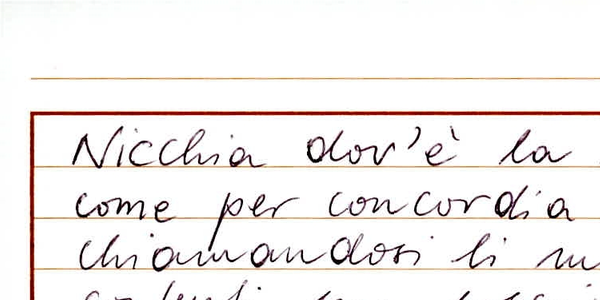 Nicchia dov'è la
come per concordia
chiamandosi li